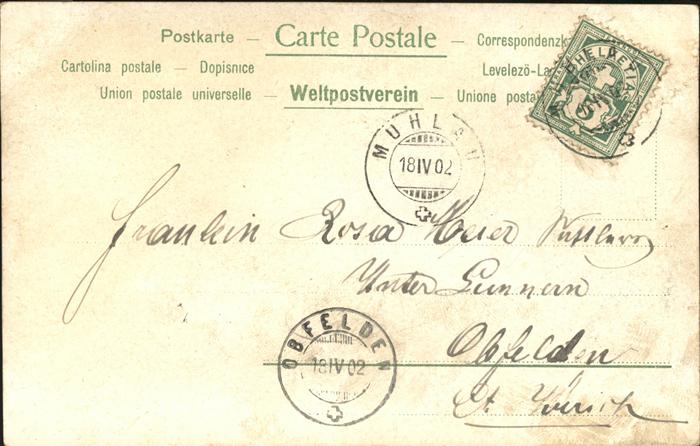 Postkarte — Carte Postale — Correspondenzk
Cartolina postale — Dopisnice Levelezö-La
Union postale universelle — Weltpostverein — Unione posta
HELVETIA
5
MÜHLAU
18 IV 02
Fräulein Rosa Meier
Unter Lunnern
OBFELDEN
18 IV 02
Obfelden
Ct. Zürich